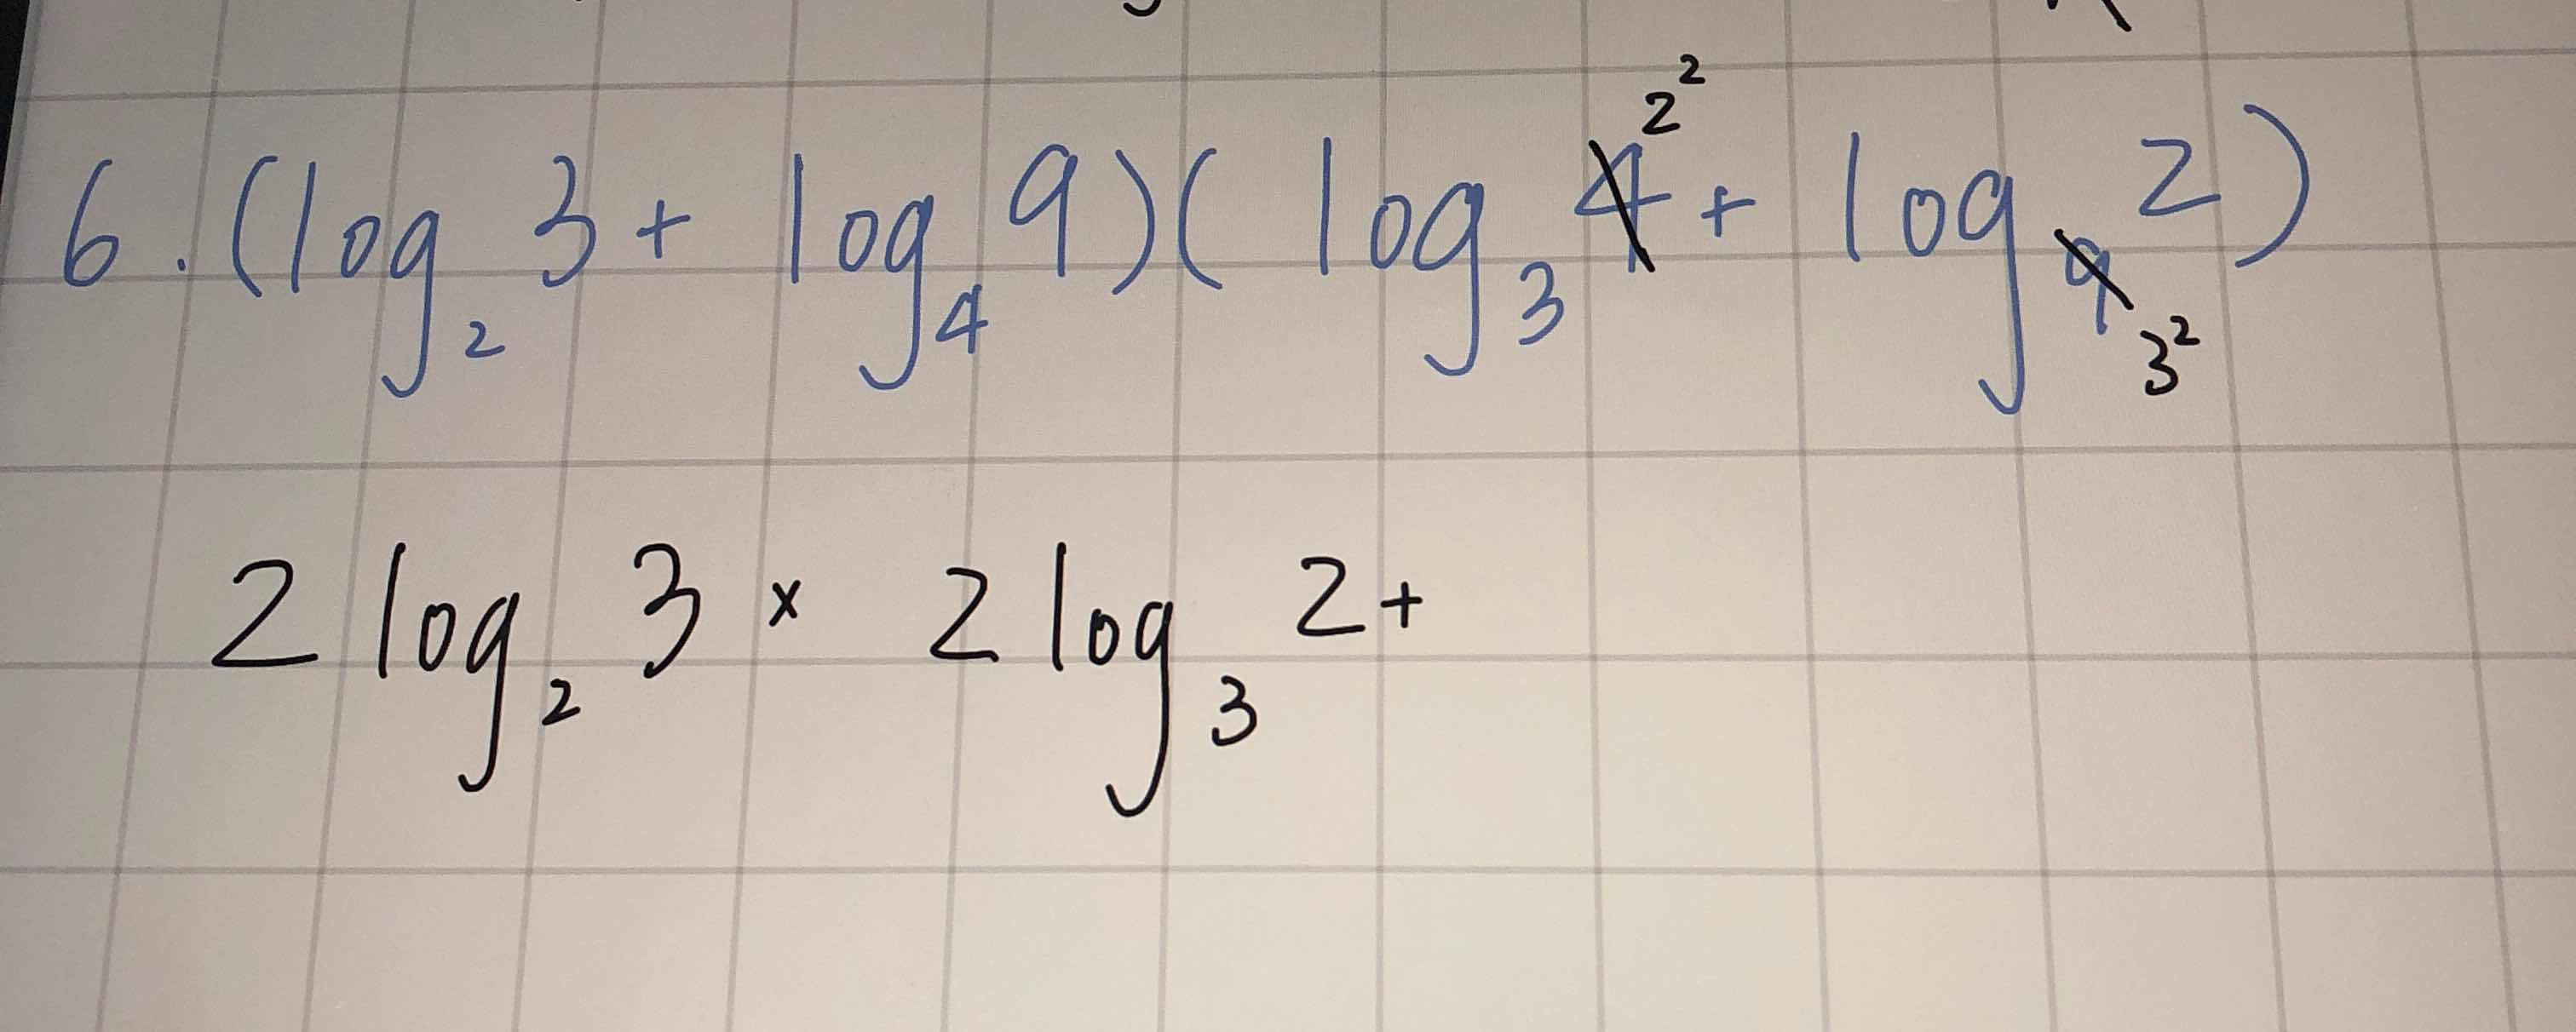 6. (log₂ 3 + log₄ 9)( log₃ 4 2² + log₉ 3² 2)
2 log₂ 3 × 2 log₃ 2 +